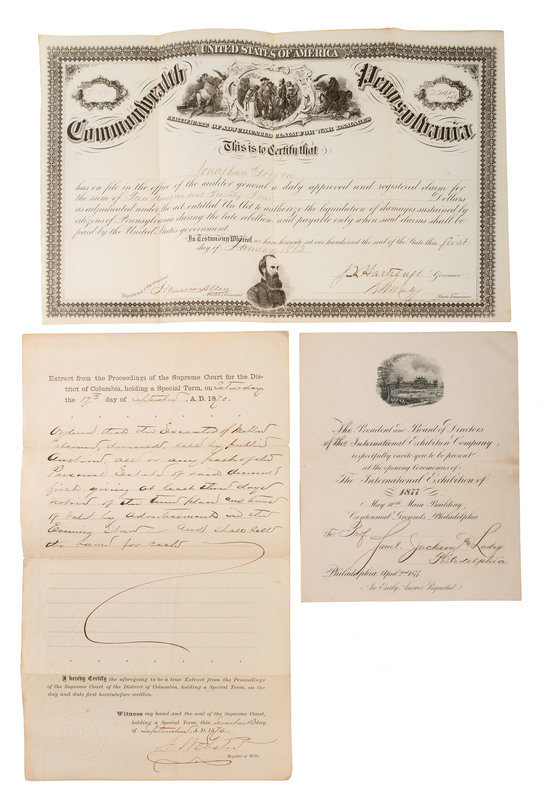 UNITED STATES OF AMERICA
Commonwealth Pennsylvania
CERTIFICATE OF ADJUDICATED CLAIM FOR WAR DAMAGES
This is to Certify that
Jonathan
has on file in the office of the auditor general a duly approved and registered claim for
the sum of Dollars
as adjudicated under the act, entitled An Act to authorize the liquidation of damages sustained by
citizens of Pennsylvania during the late rebellion, and payable only when said claims shall be
paid by the United States government.
In Testimony Whereof we have hereunto set our hands and the seal of the State this first
day of January 1872
Governor
State Treasurer
Extract from the Proceedings of the Supreme Court for the Dis-
trict of Columbia, holding a Special Term, on Saturday
the 17th day of September A. D. 1870.
Ordered that the Executor of
deceased, sell by public
Auction all or any part of
Personal Estate of said deceased
first giving at least three days
notice of the time place and terms
of sale by advertisement in the
Evening Star and shall sell
the same for cash
I hereby Certify the aforegoing to be a true Extract from the Proceedings
of the Supreme Court of the District of Columbia, holding a Special Term, on the
day and date first hereinbefore written.
Witness my hand and the seal of the Supreme Court,
holding a Special Term, this day
of September A. D. 1870.
Register of Wills.
The President and Board of Directors
of the International Exhibition Company,
respectfully invite you to be present
at the opening Ceremonies of
The International Exhibition of
1877
May 10th Main Building,
Centennial Grounds, Philadelphia
To Prof
Saml. Jackson & Lady
Philadelphia
Philadelphia April 2nd 1877
An Early Answer Requested